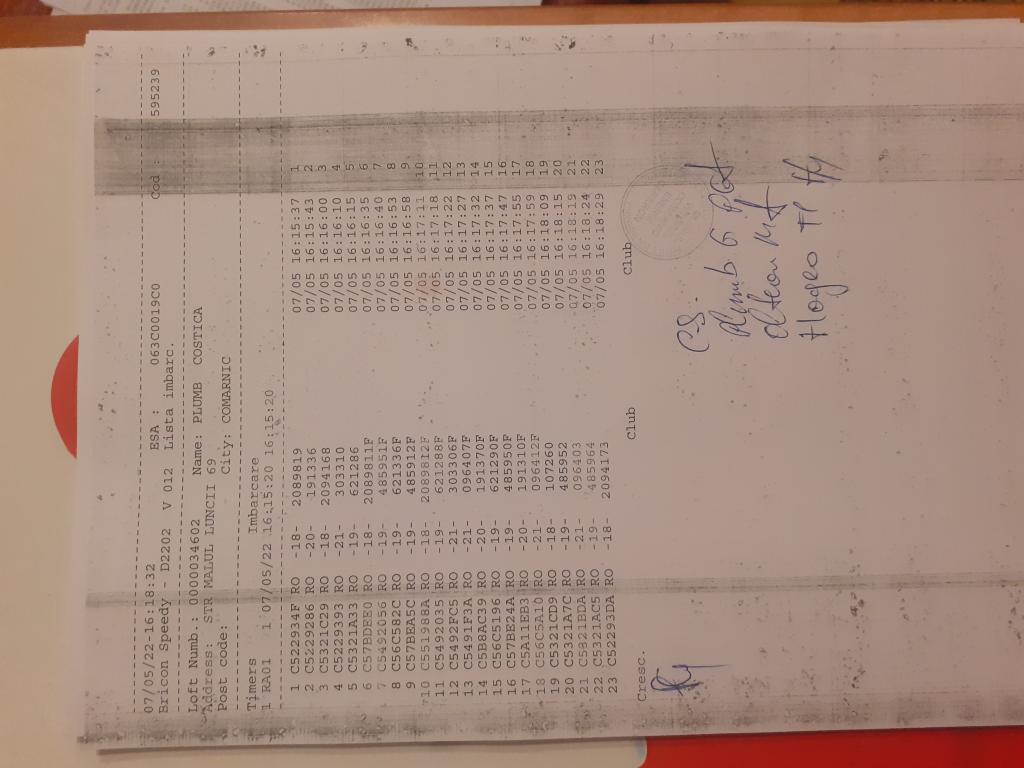 07/05/22-16:18:32 ESA : 063C0019C0 Cod : 595239
Bricon Speedy - D2202 V 012 Lista imbarc.
Loft Numb.: 0000034602 Name: PLUMB COSTICA
Address: STR MALUL LUNCII 69
Post code: City: COMARNIC
Timers Imbarcare
1 RA01 1 07/05/22 16:15:20 16:15:20
1 C522934F RO -18- 2089819 07/05 16:15:37 1
2 C5229286 RO -20- 191336 07/05 16:15:43 2
3 C5321C29 RO -18- 2094168 07/05 16:16:00 3
4 C5229393 RO -21- 303310 07/05 16:16:10 4
5 C5321A33 RO -19- 621286 07/05 16:16:15 5
6 C57BDEE0 RO -18- 2089811F 07/05 16:16:35 6
7 C5492056 RO -19- 485951F 07/05 16:16:40 7
8 C56C582C RO -19- 621336F 07/05 16:16:53 8
9 C57BEA5C RO -19- 485912F 07/05 16:16:58 9
10 C551988A RO -18- 2089812F 07/05 16:17:11 10
11 C5492035 RO -19- 621288F 07/05 16:17:18 11
12 C5492FC5 RO -21- 303306F 07/05 16:17:22 12
13 C5491F3A RO -21- 096407F 07/05 16:17:27 13
14 C5B8AC39 RO -20- 191370F 07/05 16:17:32 14
15 C56C5196 RO -19- 621290F 07/05 16:17:37 15
16 C57BE24A RO -19- 485950F 07/05 16:17:47 16
17 C5A11EB3 RO -20- 191310F 07/05 16:17:55 17
18 C56C5A10 RO -21- 096412F 07/05 16:17:59 18
19 C5321CD9 RO -18- 107260 07/05 16:18:09 19
20 C5321A7C RO -19- 485952 07/05 16:18:15 20
21 C5821BDA RO -21- 096403 07/05 16:18:19 21
22 C5321AC5 RO -19- 485964 07/05 16:18:24 22
23 C52293DA RO -18- 2094173 07/05 16:18:29 23
Cresc. Club Club